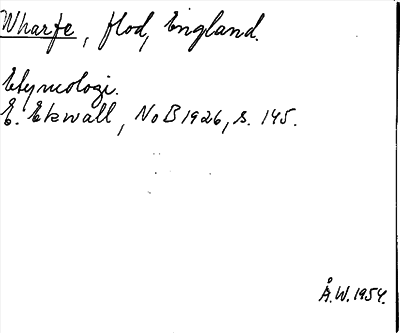 Wharfe, flod, England.
Etymologi.
E. Ekwall, NoB 1926, s. 145.
Å.W. 1954.